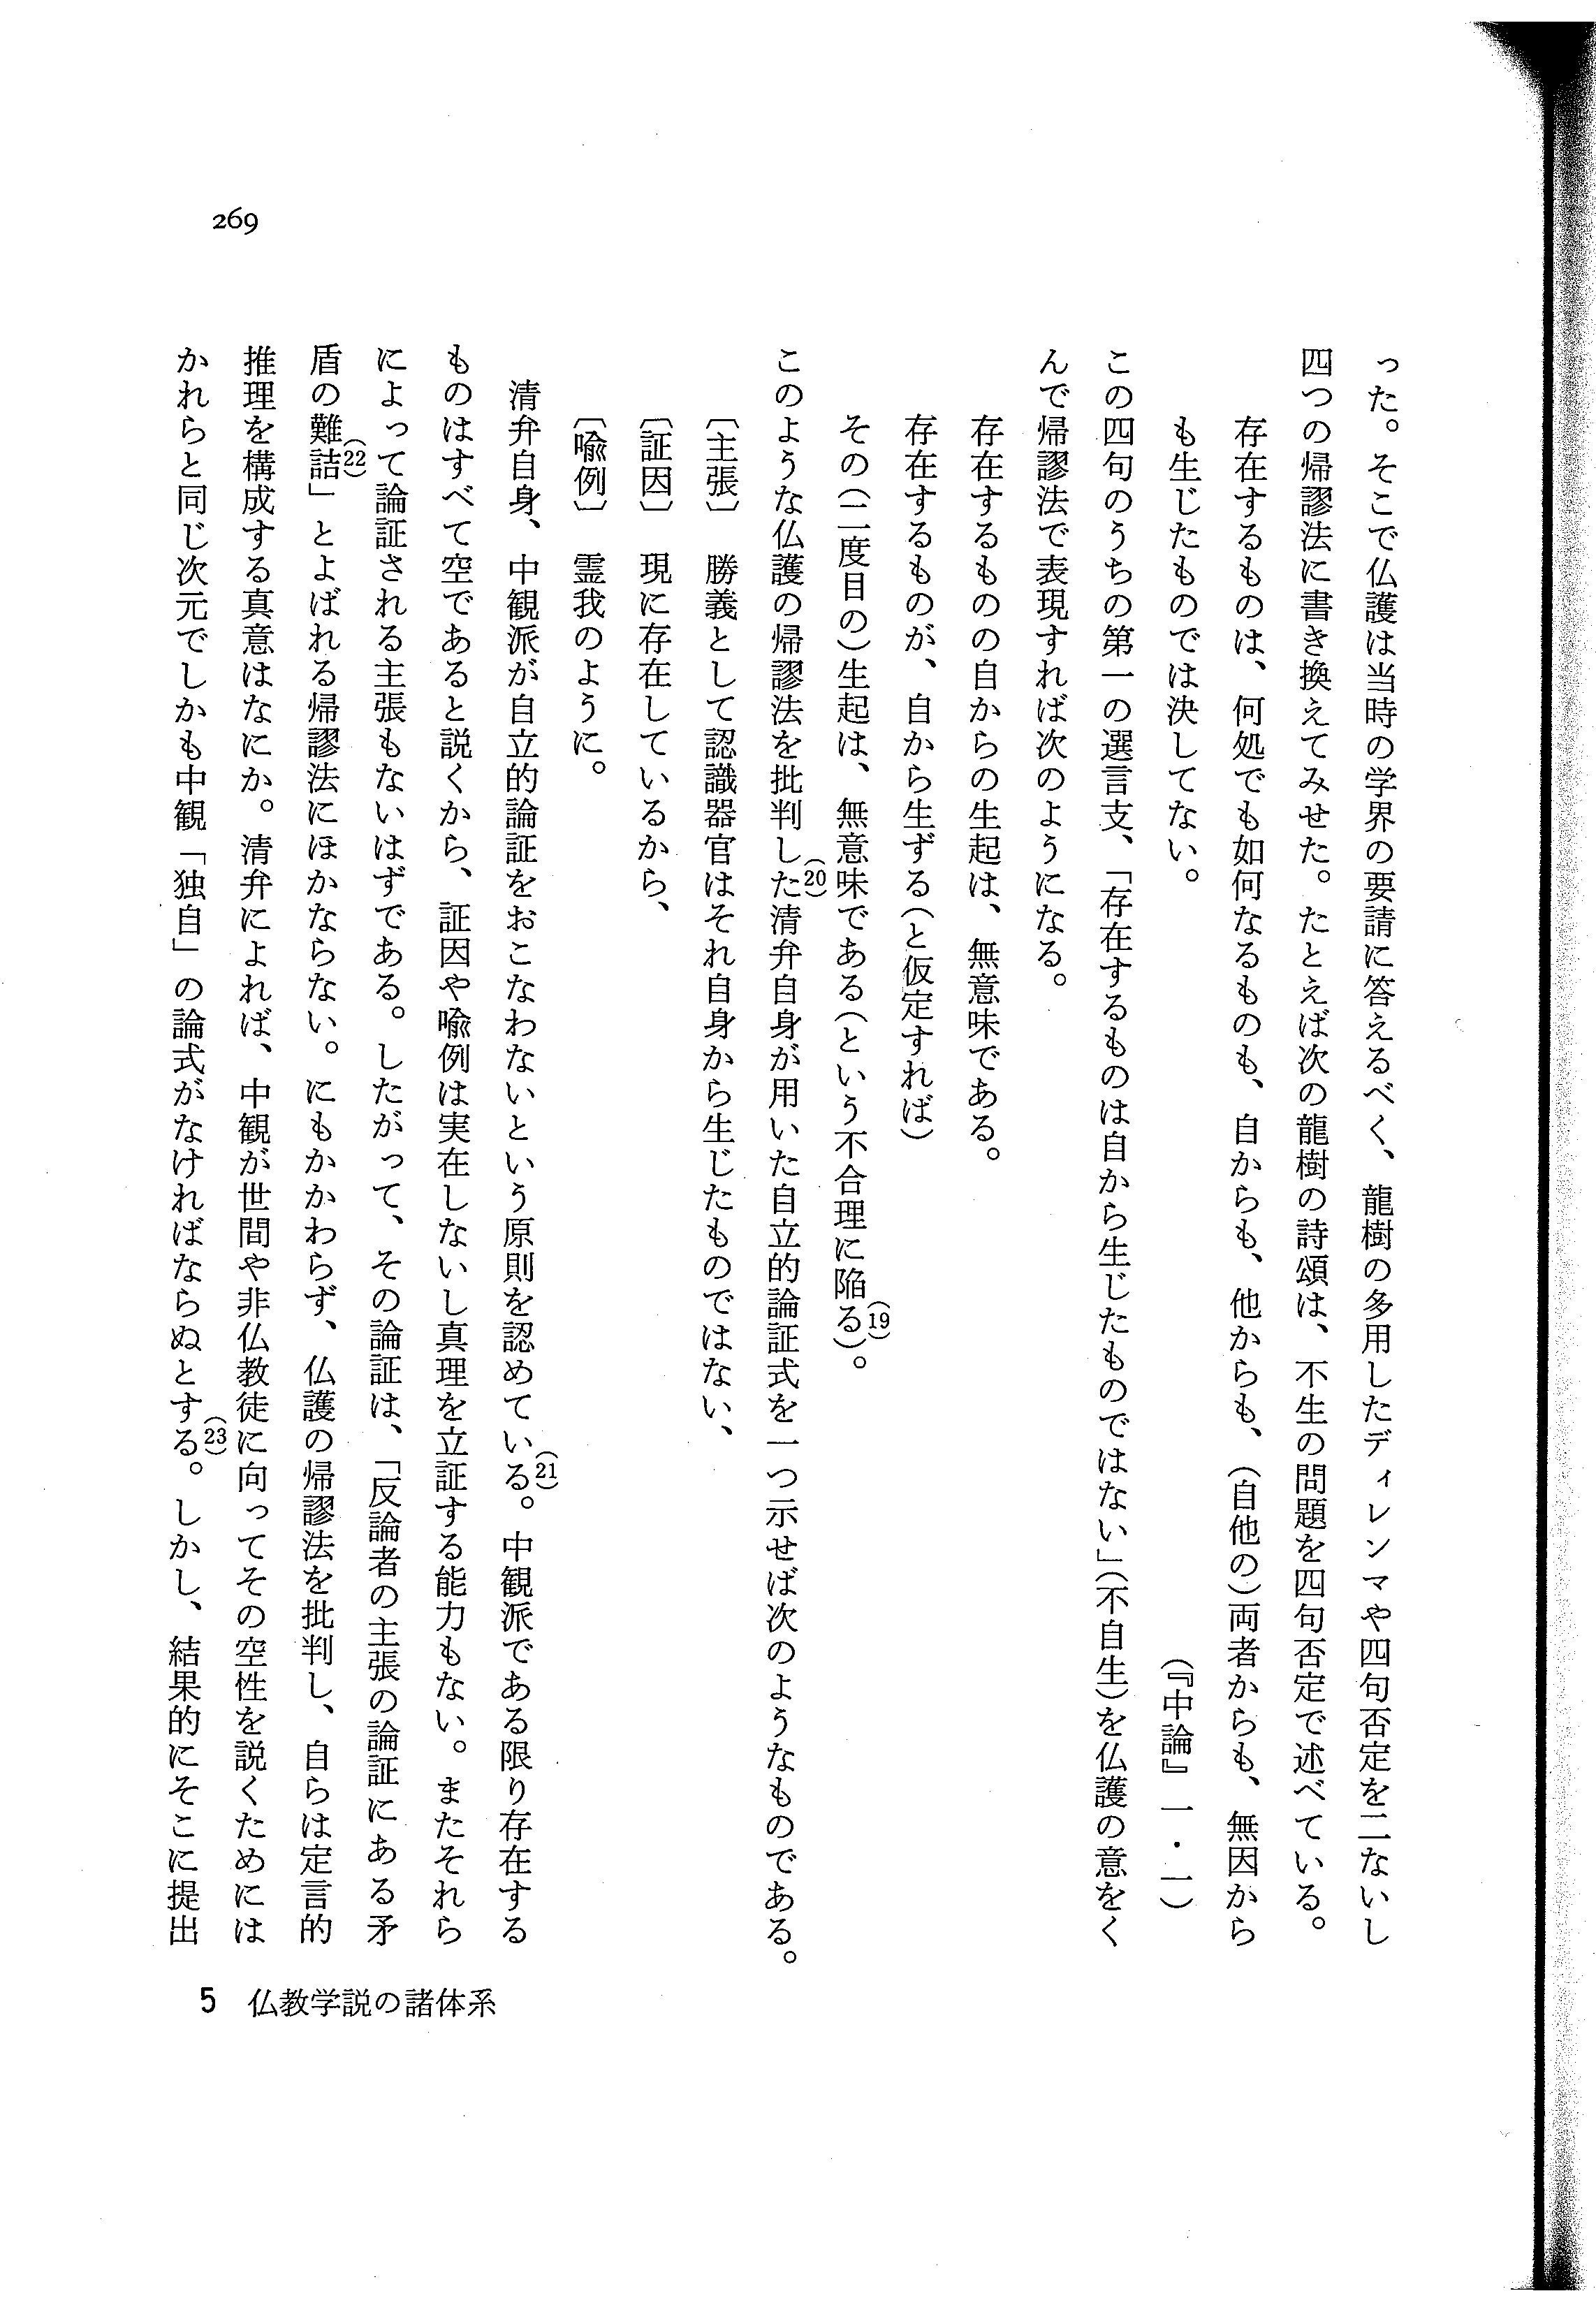 269
った。そこで仏護は当時の学界の要請に答えるべく、龍樹の多用したディレンマや四句否定を二ないし
四つの帰謬法に書き換えてみせた。たとえば次の龍樹の詩頌は、不生の問題を四句否定で述べている。
存在するものは、何処でも如何なるものも、自からも、他からも、(自他の)両者からも、無因から
も生じたものでは決してない。(『中論』一・一)
この四句のうちの第一の選言支、「存在するものは自から生じたものではない」(不自生)を仏護の意をく
んで帰謬法で表現すれば次のようになる。
存在するものの自からの生起は、無意味である。
存在するものが、自から生ずる(と仮定すれば)
その(二度目の)生起は、無意味である(という不合理に陥る)(19)。
このような仏護の帰謬法を批判した(20)清弁自身が用いた自立的論証式を一つ示せば次のようなものである。
〔主張〕 勝義として認識器官はそれ自身から生じたものではない、
〔証因〕 現に存在しているから、
〔喩例〕 霊我のように。
清弁自身、中観派が自立的論証をおこなわないという原則を認めている(21)。中観派である限り存在する
ものはすべて空であると説くから、証因や喩例は実在しないし真理を立証する能力もない。またそれら
によって論証される主張もないはずである。したがって、その論証は、「反論者の主張の論証にある矛
盾の難詰(22)」とよばれる帰謬法にほかならない。にもかかわらず、仏護の帰謬法を批判し、自らは定言的
推理を構成する真意はなにか。清弁によれば、中観が世間や非仏教徒に向ってその空性を説くためには
かれらと同じ次元でしかも中観「独自」の論式がなければならぬとする(23)。しかし、結果的にそこに提出
5 仏教学説の諸体系